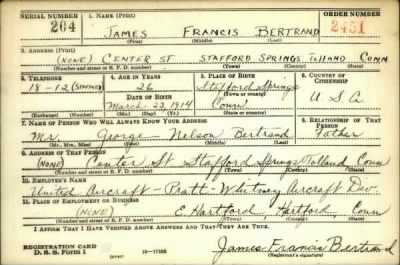 SERIAL NUMBER 1. NAME (Print) ORDER NUMBER
264 JAMES FRANCIS BERTRAND 2451
(First) (Middle) (Last)
2. ADDRESS (Print)
(NONE) CENTER ST STAFFORD SPRINGS TOLLAND CONN
(Number and street or R. F. D. number) (Town) (County) (State)
3. TELEPHONE 4. AGE IN YEARS 5. PLACE OF BIRTH 6. COUNTRY OF CITIZENSHIP
18-12 26 Stafford Springs
DATE OF BIRTH (Town or county)
March 23, 1914 Conn U. S. A.
(Exchange) (Number) (Mo.) (Day) (Yr.) (State or country)
7. NAME OF PERSON WHO WILL ALWAYS KNOW YOUR ADDRESS 8. RELATIONSHIP OF THAT PERSON
Mr. George Nelson Bertrand Father
(Mr., Mrs., Miss) (First) (Middle) (Last)
9. ADDRESS OF THAT PERSON
(NONE) Center St Stafford Springs Tolland Conn
(Number and street or R. F. D. number) (Town) (County) (State)
10. EMPLOYER'S NAME
United Aircraft - Pratt-Whitney Aircraft Div
11. PLACE OF EMPLOYMENT OR BUSINESS
(NONE) E. Hartford, Hartford, Conn
(Number and street or R. F. D. number) (Town) (County) (State)
I AFFIRM THAT I HAVE VERIFIED ABOVE ANSWERS AND THAT THEY ARE TRUE.
REGISTRATION CARD
D. S. S. Form 1 (over) 16-17105 James Francis Bertrand
(Registrant's signature)